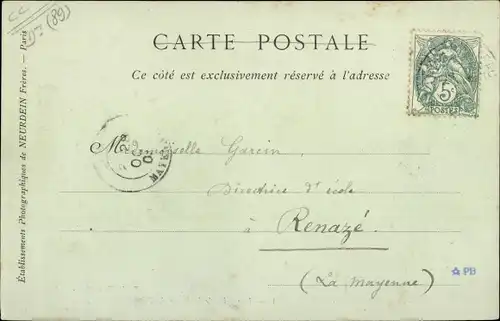 CC
(89)
CARTE POSTALE
Ce côté est exclusivement réservé à l'adresse
5c
POSTES
Mademoiselle Garcin
MAYENNE
Directrice d'école
à
Renazé.
(La Mayenne)
☆ PB
Établissements Photographiques de NEURDEIN Frères. — Paris